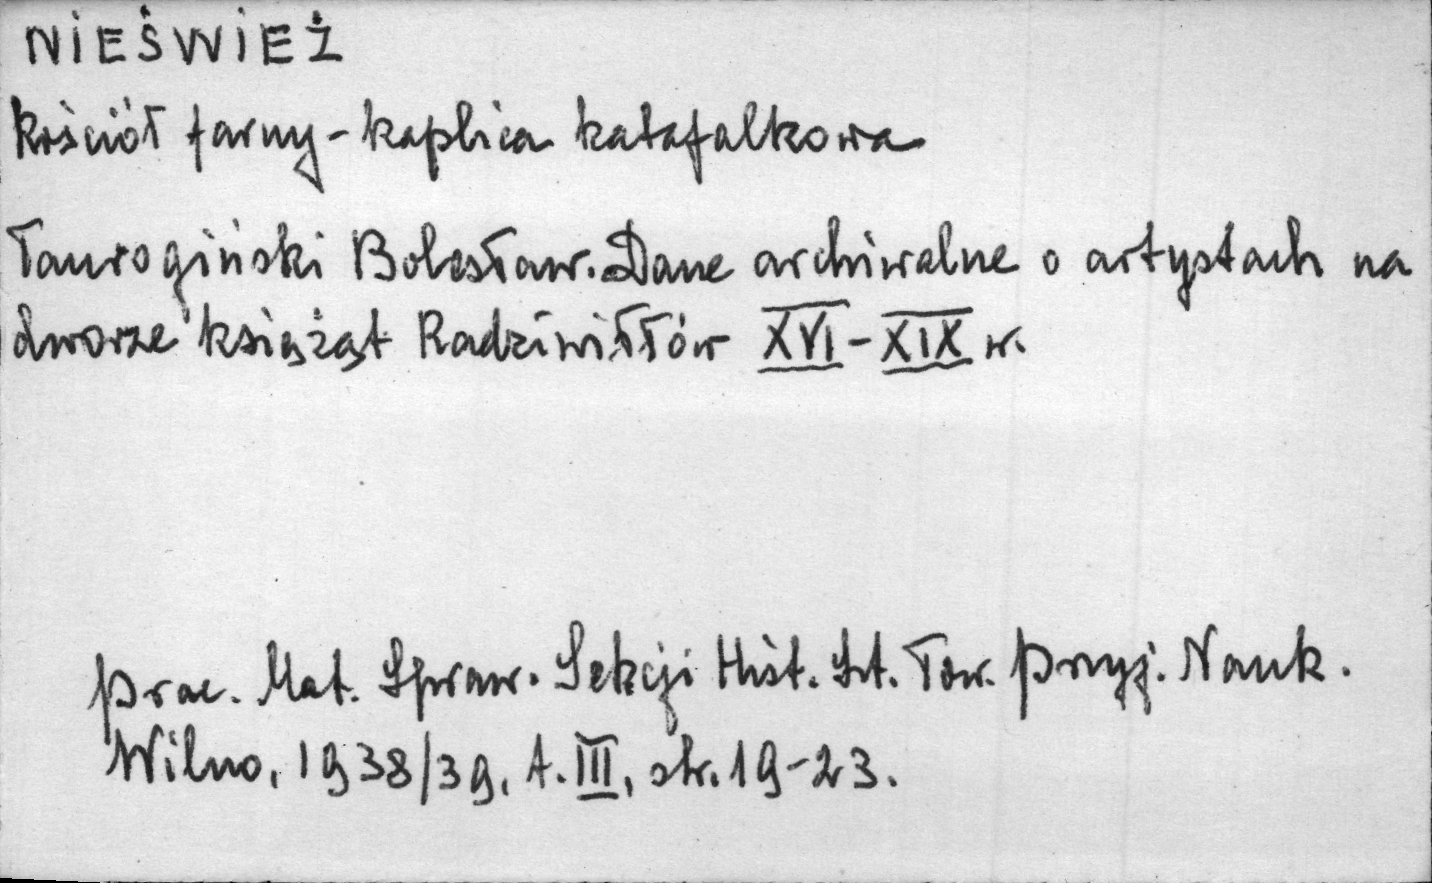 NIEŚWIEŻ
Kościół farny - kaplica katafalkowa
Taurogiński Bolesław. Dane archiwalne o artystach na
dworze książąt Radziwiłłów XVI - XIX w.
Prac. Mat. Spraw. Sekcji Hist. Szt. Tow. Przyj. Nauk.
Wilno, 1938/39, t. III, str. 19-23.